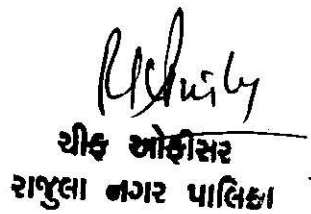 ચીફ ઓફીસર
રાજુલા નગર પાલિકા